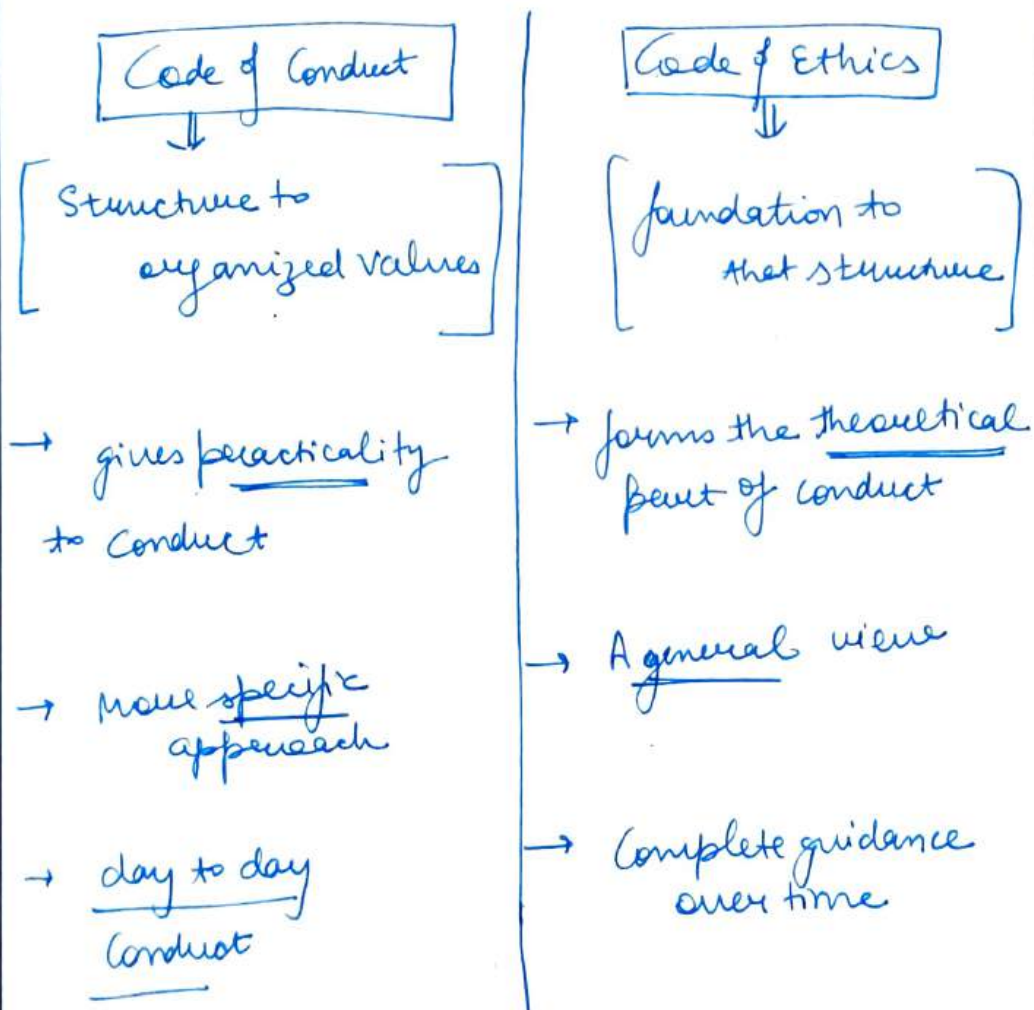 Code of Conduct
⇓
[Structure to
organized values]
→ gives practicality
to conduct
→ More specific
approach
→ day to day
Conduct
Code of Ethics
⇓
[foundation to
that structure]
→ forms the theoretical
part of conduct
→ A general view
→ Complete guidance
over time